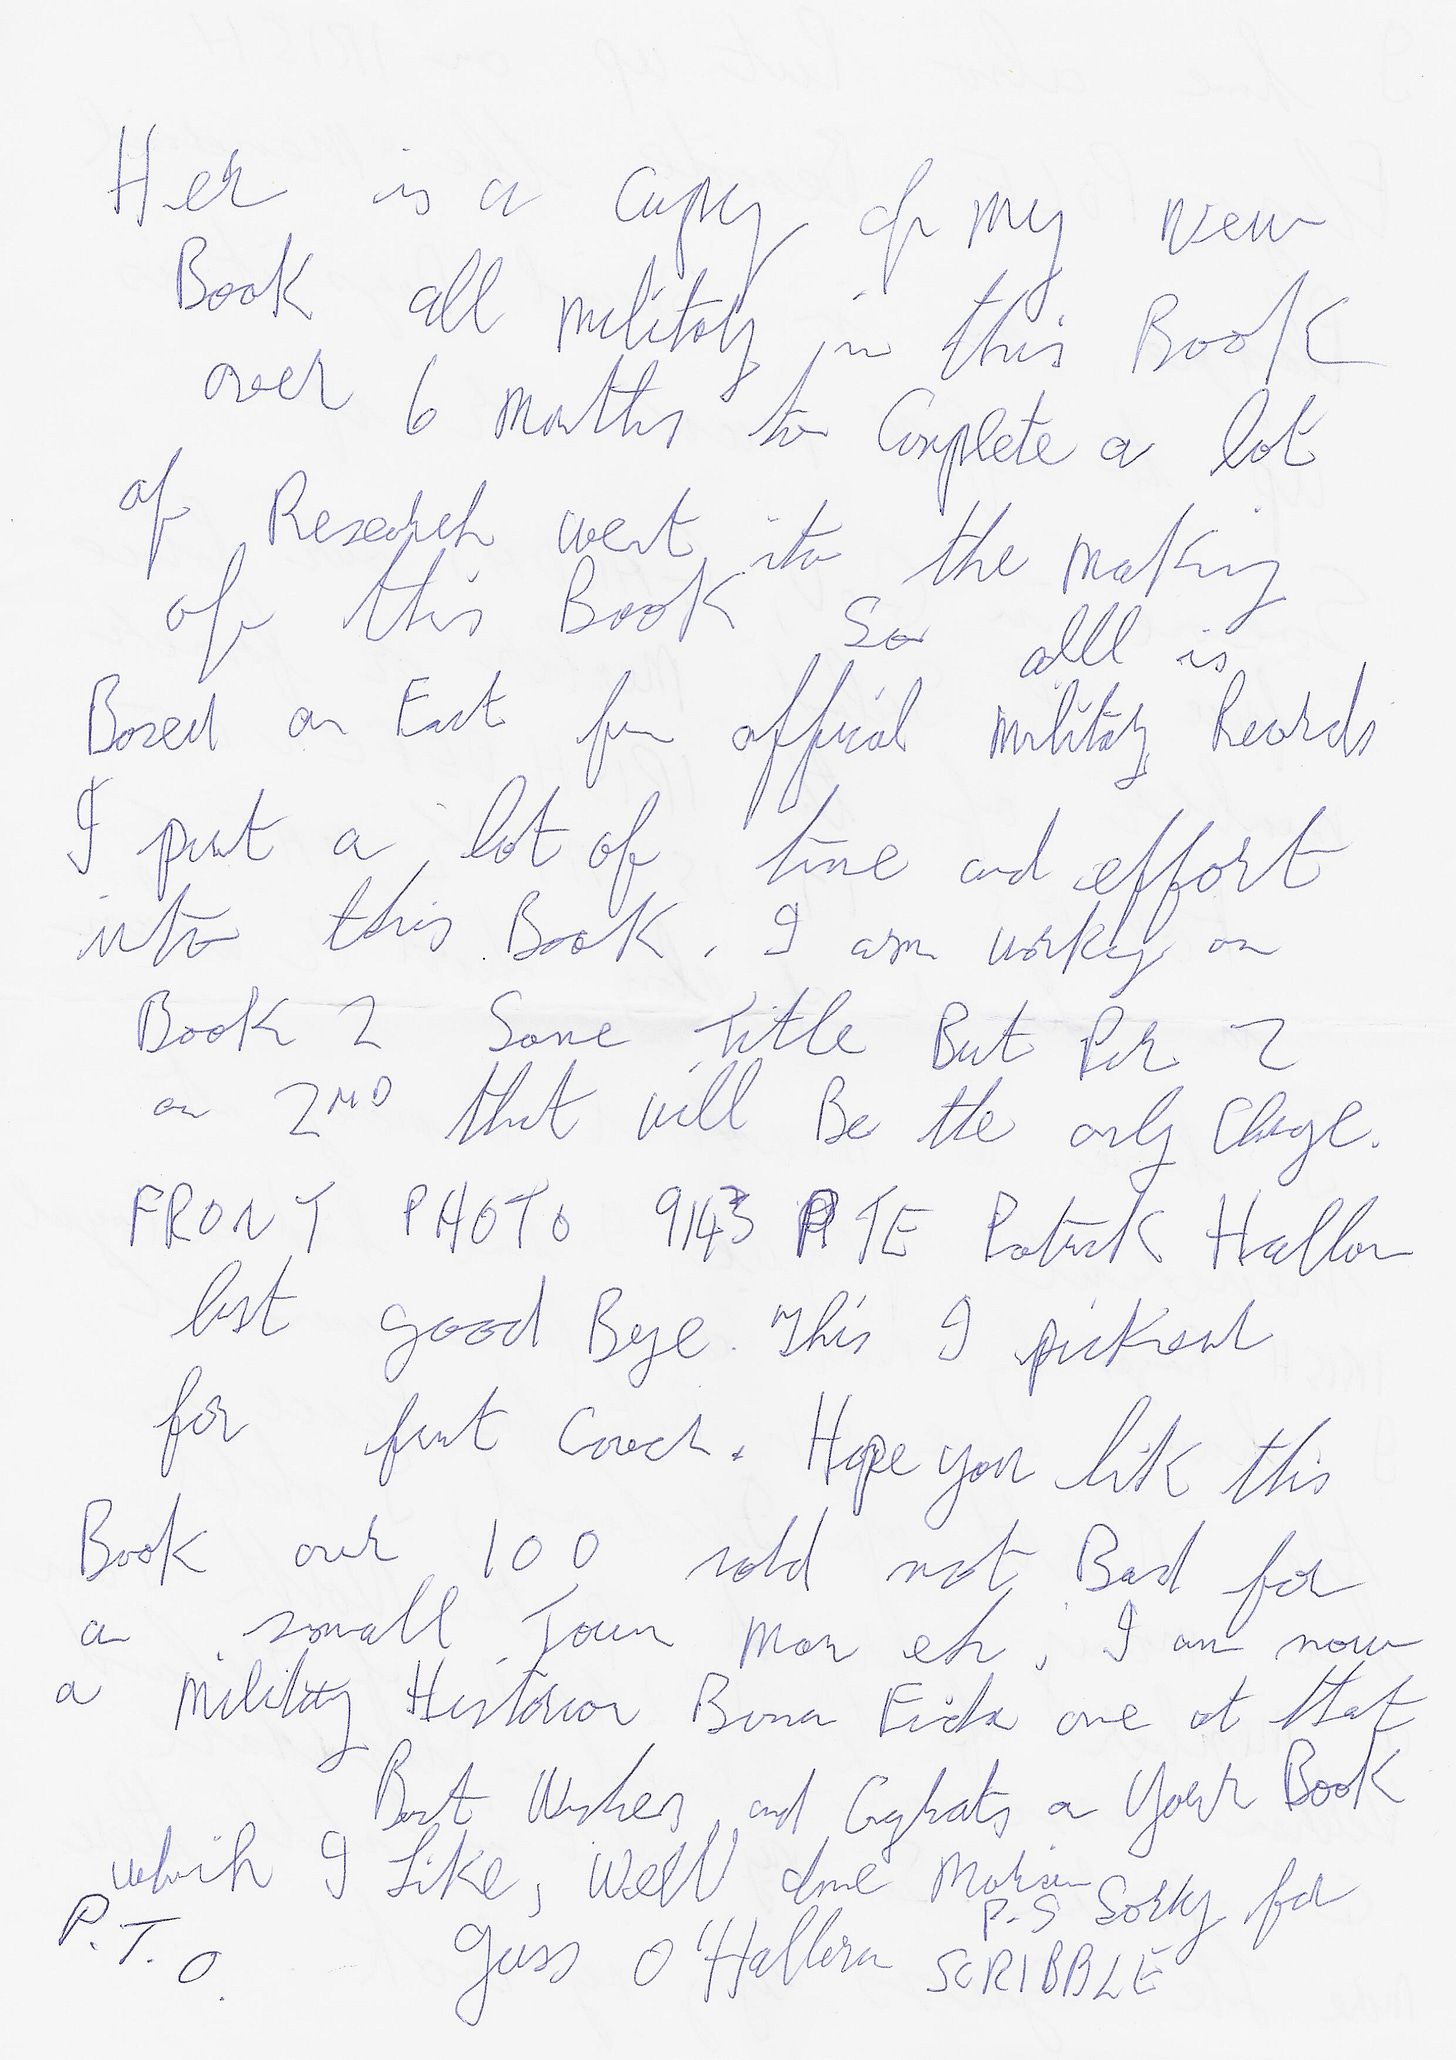 Her is a Cupey of My New
Book all military in this Book
over 6 Months to Complete a lot
of Research went into the Making
of this Book So alll is
Based on Fact fom offical Military Records
I put a lot of time and effort
into this Book. I am working on
Book 2 Same Title But Par 2
or 2ND that will Be the only Chage.
FRONT PHOTO 9143 PTE Patrick Hallon
last good Bye. This I picked
for frnt Cover. Hope you lik this
Book over 100 sold not Bad for
a small Town Man eh, I am now
a Military Historian Bona Fida one at that
Best Wishes and Cograts on Your Book
which I Like, Well done
P.S Sorry for
P.T.O. Guss O'Halloran SCRIBBLE